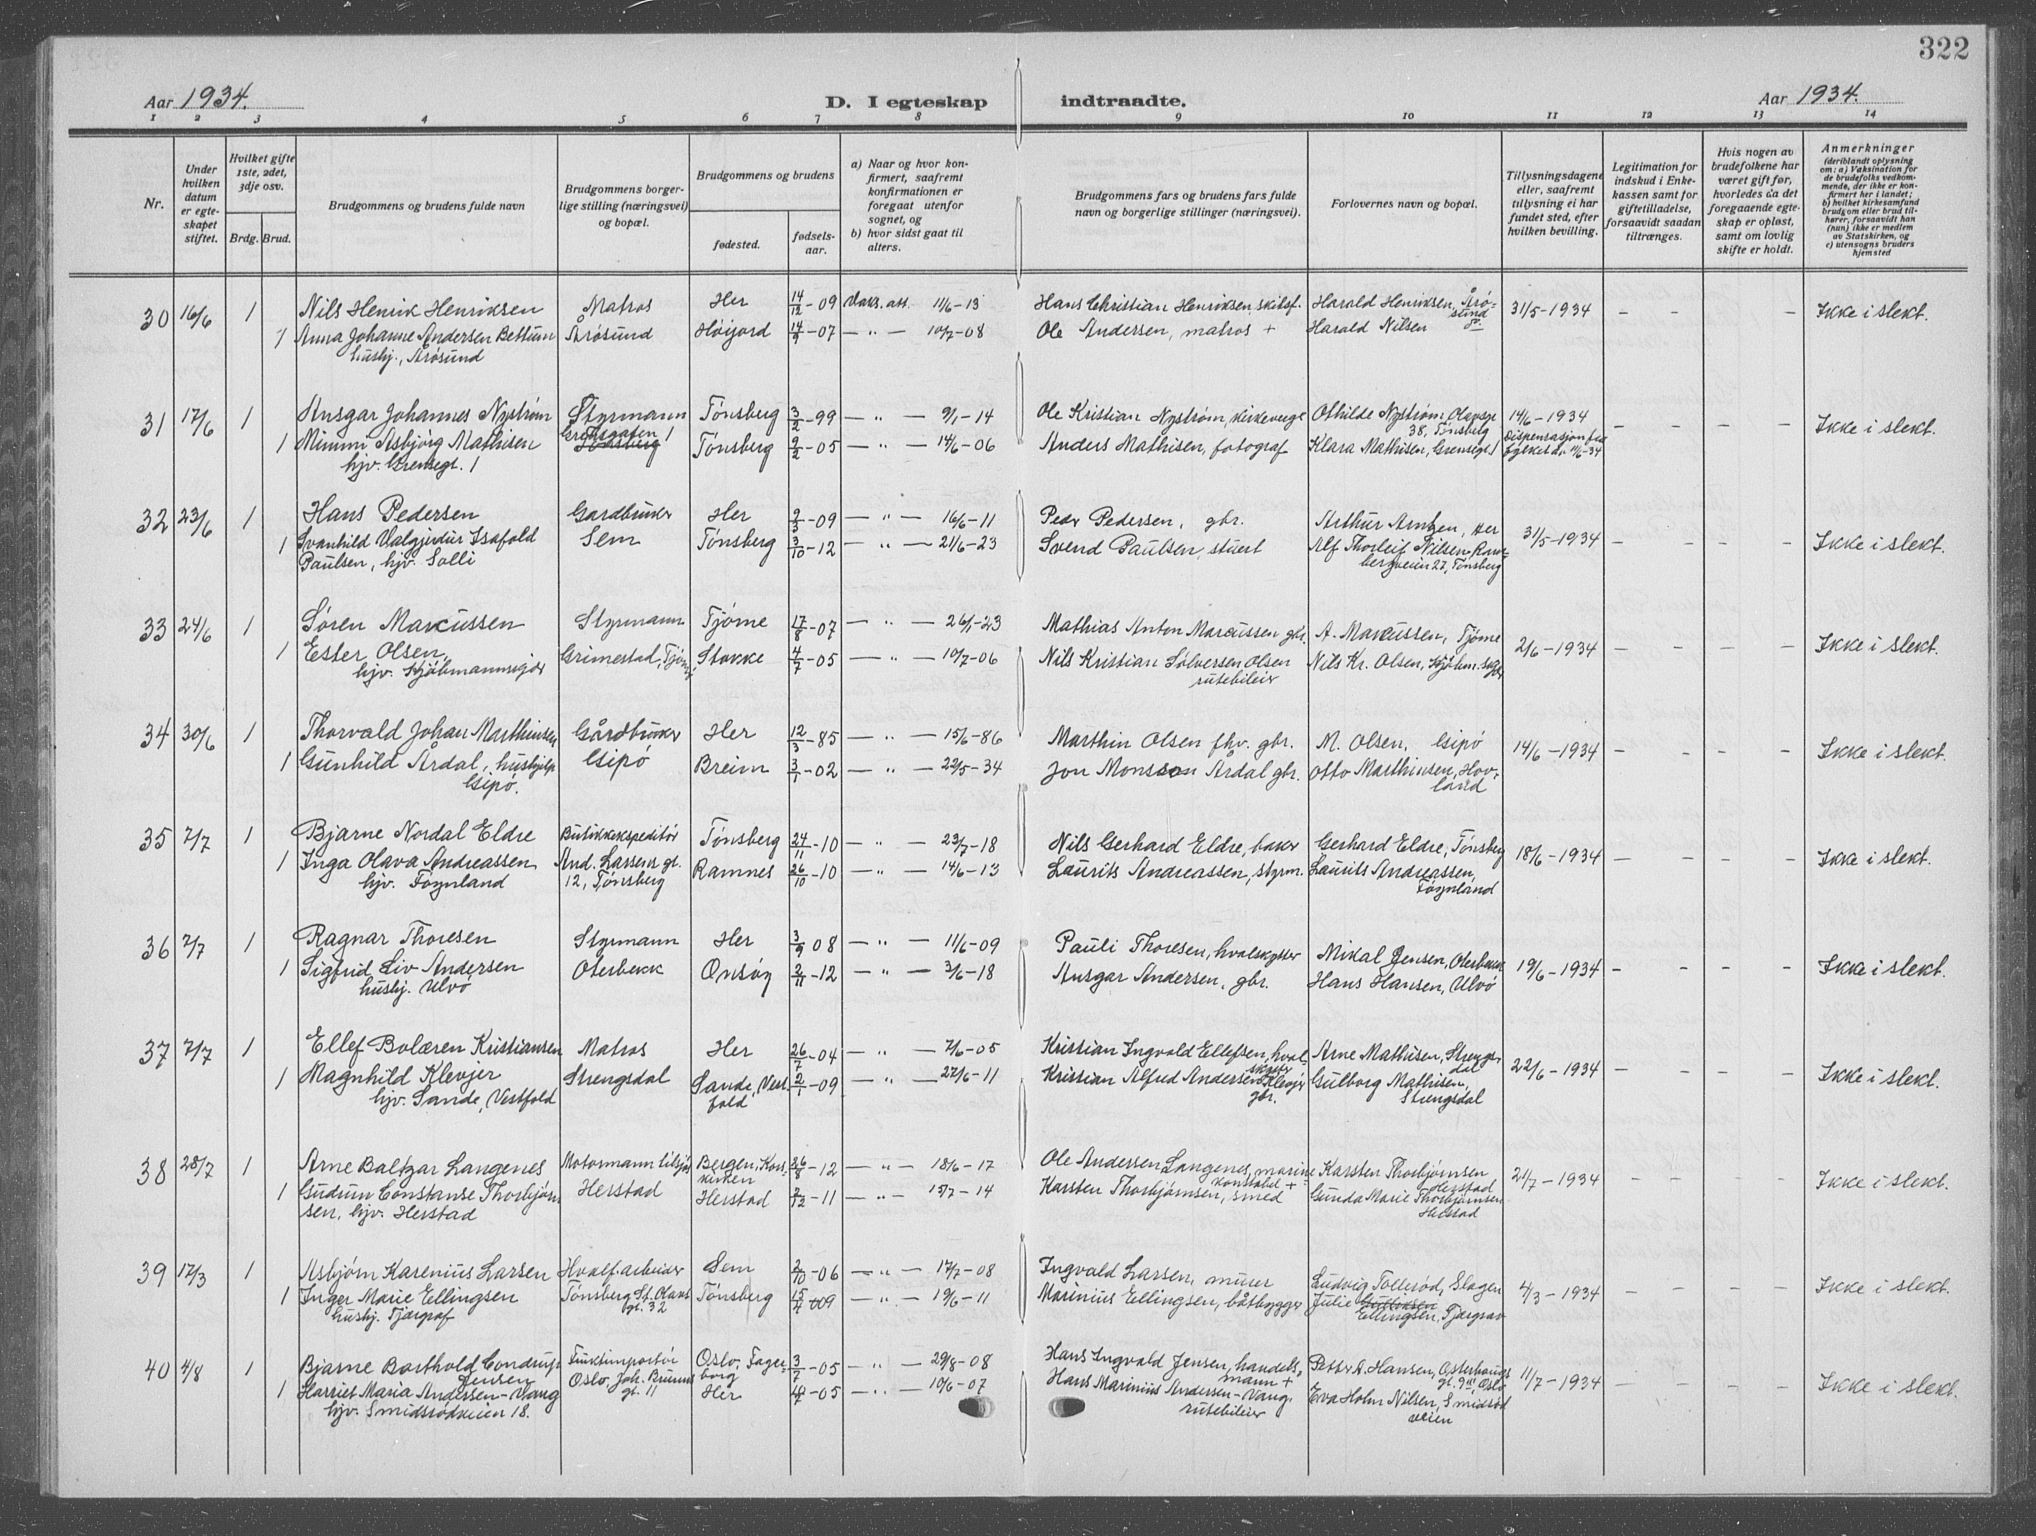 322
Aar 1934.
D. I egteskap indtraadte.
Aar 1934.
1 2 3 4 5 6 7 8 9 10 11 12 13 14
Nr.
Under hvilken datum er egteskapet stiftet.
Hvilket gifte 1ste, 2det, 3dje osv.
Brdg. Brud.
Brudgommens og brudens fulde navn
Brudgommens borgerlige stilling (næringsvei) og bopæl.
Brudgommens og brudens
fødested.
fødselsaar.
a) Naar og hvor konfirmert, saafremt konfirmationen er foregaat utenfor sognet, og
b) hvor sidst gaat til alters.
Brudgommens fars og brudens fars fulde navn og borgerlige stillinger (næringsvei).
Forlovernes navn og bopæl.
Tillysningsdagene eller, saafremt tillysning ei har fundet sted, efter hvilken bevilling.
Legitimation for indskud i Enkekassen samt for giftetilladelse, forsaavidt saadan tiltrænges.
Hvis nogen av brudefolkene har været gift før, hvorledes da det foregaaende egteskap er opløst, samt om lovlig skifte er holdt.
Anmerkninger
(deriblandt oplysning om: a) Vaksination for de brudefolks vedkommende, der ikke er konfirmert her i landet; b) hvilket kirkesamfund brudgom eller brud tilhører, forsaavidt han (hun) ikke er medlem av Statskirken, og c) utensogns bruders hjemsted
30 16/6 1 Nils Henrik Henriksen Matros Her 14/12-09 Vaks. att. 11/6-13 Hans Christian Henriksen, skibsf. Harald Henriksen, Årøsund 31/5-1934 - - - Ikke i slekt.
1 Anna Johanne Andersen Bettum Årøsund Høijord 14/9-07 -"- 10/7-08 Ole Andersen, matros + Harald Nilsen do
husbj., Årøsund
31 17/6 1 Ansgar Johannes Nystrøm Styrmann Tønsberg 3/2-99 -"- 9/1-14 Ole Kristian Nystrøm, kirkeverge Othilde Nystrøm, Olavsgt. 38, Tønsberg 14/6-1934 - - - - Ikke i slekt.
1 Mimmi Asbjørg Mathisen Grensegaten 1 Tønsberg Tønsberg 9/2-05 -"- 14/6-06 Anders Mathisen, fotograf Klara Mathisen, Grensegt. 1 Dispensasjon fra fylkes
hjv. Grensegt. 1
32 23/6 1 Hans Pedersen Gardbruker Her 2/3-09 -"- 16/6-11 Peder Pedersen, gbr. Arthur Arntzen, Her 31/5-1934 - - - - Ikke i slekt.
1 Svanhild Valgjerdur Isafold Sem Tønsberg 3/10-12 -"- 21/6-23 Svend Paulsen, stuert Alf Thorleif Nilsen
Paulsen, hjv. Solli
33 24/6 1 Søren Marcussen Styrmann Tjøme 17/8-07 -"- 26/1-23 Mathias Anton Marcussen gbr. A. Marcussen, Tjøme 2/6-1934 - - - - Ikke i slekt.
1 Ester Olsen, Grimestad, Tjøme Stokke 4/7-05 -"- 10/7-06 Nils Kristian Sølversen Olsen Nils Kr. Olsen,
hjv. rutebileier
34 30/6 1 Thorvald Johan Marthinsen Gårdbruker Her 12/3-85 -"- 15/6-86 Marthin Olsen fhv. gbr. M. Olsen, Gipø 14/6-1934 - - - - Ikke i slekt.
1 Gunhild Årdal, hushjelp Gipø Breim 3/1-02 -"- 22/5-34 Jon Monsson Årdal gbr. Otto Marthinsen, Hovland
Gipø.
35 7/7 1 Bjarne Nordal Eldre Butikkekspeditør Tønsberg 24/11-10 -"- 23/7-18 Nils Gerhard Eldre, baker Gerhard Eldre, Tønsberg 18/6-1934 - - - - Ikke i slekt.
1 Inga Olava Andreassen And. Lassens gt. 12, Tønsberg Ramnes 26/10-10 -"- 14/6-13 Laurits Andreassen, styrm. Laurits Andreassen, Føynland
hjv. Føynland
36 7/7 1 Ragnar Thoresen Styrmann Her 3/9 08 -"- 11/6-09 Pauli Thoresen, hvalskytter Mikal Jensen, Oterbekk 19/6-1934 - - - - Ikke i slekt.
1 Sigfrid Liv Andersen Oterbekk Onsøy 2/11-12 -"- 3/6-18 Ansgar Andersen, gbr. Hans Hansen, Ulvø
husbj. Ulvø
37 7/7 1 Ellef Bolæren Kristiansen Matros Her 26/7-04 -"- 7/6-05 Kristian Ingvald Ellefsen, hvalskytter Arne Mathisen, Strengsdal 22/6-1934 - - - - Ikke i slekt.
1 Magnhild Klevjer Strengsdal Sande, Vestfold 2/1-09 -"- 22/6-11 Kristian Alfred Andersen Klevjer gbr. Gulborg Mathisen, Strengsdal
hjv. Sande, Vestfold
38 28/7 1 Arne Baltzar Langenes Motormann tilsjøs Bergen, Korskirken 26/8-12 -"- 18/6-17 Ole Andersen Langenes, marinekonstabel + Karsten Thorbjørnsen Herstad 2/7-1934 - - - - Ikke i slekt.
1 Gudrun Constanse Thorbjørnsen, hjv. Herstad Herstad Herstad 2/12-11 -"- 15/7-14 Karsten Thorbjørnsen, smed Gunda Marie Thorbjørnsen Herstad
39 17/3 1 Asbjørn Karenius Larsen Hvalfarbeider Sem 2/10-06 -"- 17/7-08 Ingvald Larsen, murer Ludvig Tollerød, Slagen 4/3-1934 - - - - Ikke i slekt.
1 Inger Marie Ellingsen Tønsberg St. Olavs gt. 32 Tønsberg 15/4-09 -"- 19/6-11 Marinius Ellingsen, båtbygger Julie Ellingsen, Tjærgrav
husbj. Tjærgraf
40 4/8 1 Bjarne Barthold Condrup Jensen Funktionær Oslo, Fagerborg 3/7-05 -"- 29/8-08 Hans Ingvald Jensen, handelsmann + Petter A. Hansen, Osterhausgt. 9, Oslo 11/7-1934 - - - - Ikke i slekt.
1 Harriet Maria Andersen-Vang Oslo, Joh. Bruuns gt. 11 Her 4/7-05 -"- 10/6-07 Hans Marinius Andersen-Vang, rutebileier Eva Holm Nilsen, Smidsrødveien
hjv. Smidsrødveien 18.